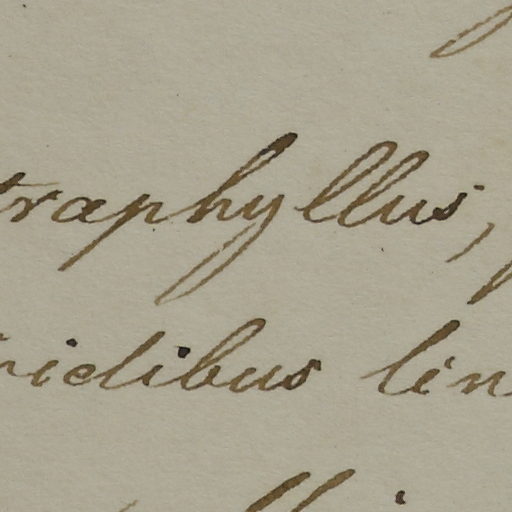 traphyllus,
idibus lin